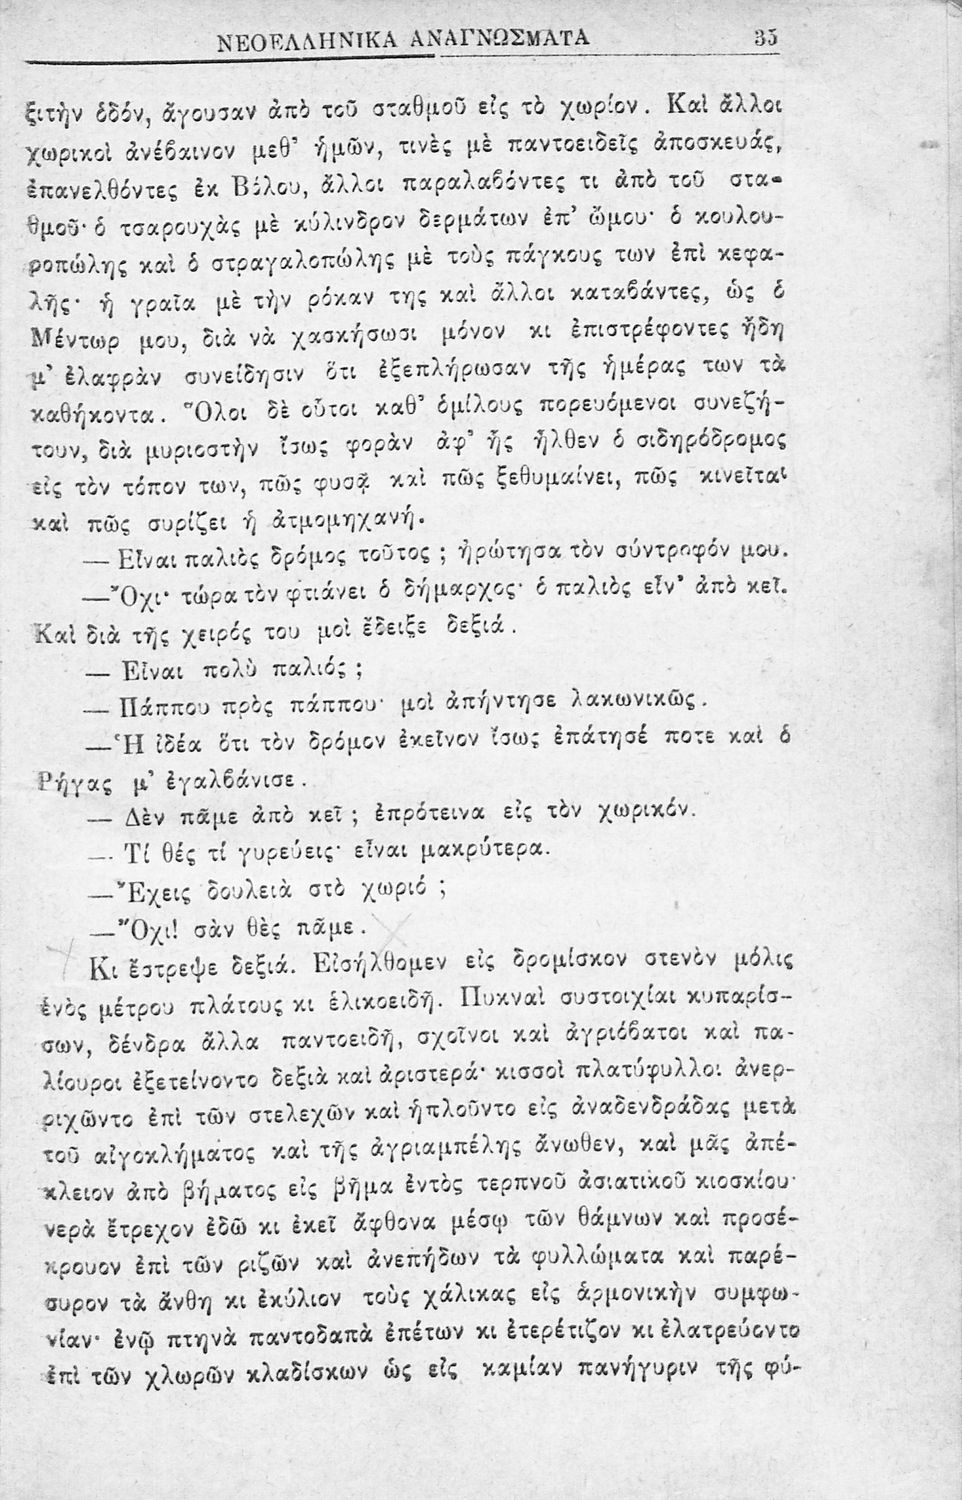 ΝΕΟΕΛΛΗΝΙΚΑ ΑΝΑΓΝΩΣΜΑΤΑ 35
ξιτὴν ὁδόν, ἄγουσαν ἀπὸ τοῦ σταθμοῦ εἰς τὸ χωρίον. Καὶ ἄλλοι
χωρικοὶ ἀνέβαινον μεθ' ἡμῶν, τινὲς μὲ παντοειδεῖς ἀποσκευάς,
ἐπανελθόντες ἐκ Βόλου, ἄλλοι παραλαβόντες τι ἀπὸ τοῦ στα-
θμοῦ· ὁ τσαρουχὰς μὲ κύλινδρον δερμάτων ἐπ' ὤμου· ὁ κουλου-
ροπώλης καὶ ὁ στραγαλοπώλης μὲ τοὺς πάγκους των ἐπὶ κεφα-
λῆς· ἡ γραῖα μὲ τὴν ρόκαν της καὶ ἄλλοι καταβάντες, ὡς ὁ
Μέντωρ μου, διὰ νὰ χασκήσωσι μόνον κι ἐπιστρέφοντες ἤδη
μ' ἐλαφρὰν συνείδησιν ὅτι ἐξεπλήρωσαν τῆς ἡμέρας των τὰ
καθήκοντα. Ὅλοι δὲ οὗτοι καθ' ὁμίλους πορευόμενοι συνεζή-
τουν, διὰ μυριοστὴν ἴσως φορὰν ἀφ' ἧς ἦλθεν ὁ σιδηρόδρομος
εἰς τὸν τόπον των, πῶς φυσᾷ καὶ πῶς ξεθυμαίνει, πῶς κινεῖται
καὶ πῶς συρίζει ἡ ἀτμομηχανή.
— Εἶναι παλιὸς δρόμος τοῦτος ; ἠρώτησα τὸν σύντροφόν μου.
—Ὄχι· τώρα τὸν φτιάνει ὁ δήμαρχος· ὁ παλιὸς εἶν' ἀπὸ κεῖ.
Καὶ διὰ τῆς χειρός του μοὶ ἔδειξε δεξιά.
— Εἶναι πολὺ παλιός ;
— Πάππου πρὸς πάππου· μοὶ ἀπήντησε λακωνικῶς.
—Ἡ ἰδέα ὅτι τὸν δρόμον ἐκεῖνον ἴσως ἐπάτησέ ποτε καὶ ὁ
Ρήγας μ' ἐγαλβάνισε.
— Δὲν πᾶμε ἀπὸ κεῖ ; ἐπρότεινα εἰς τὸν χωρικόν.
— Τί θές τί γυρεύεις· εἶναι μακρύτερα.
—Ἔχεις δουλειὰ στὸ χωριό ;
—Ὄχι! σὰν θὲς πᾶμε.
Κι ἔστρεψε δεξιά. Εἰσήλθομεν εἰς δρομίσκον στενὸν μόλις
ἑνὸς μέτρου πλάτους κι ἑλικοειδῆ. Πυκναὶ συστοιχίαι κυπαρίσ-
σων, δένδρα ἄλλα παντοειδῆ, σχοῖνοι καὶ ἀγριόβατοι καὶ πα-
λίουροι ἐξετείνοντο δεξιὰ καὶ ἀριστερά· κισσοὶ πλατύφυλλοι ἀνερ-
ριχῶντο ἐπὶ τῶν στελεχῶν καὶ ἡπλοῦντο εἰς ἀναδενδράδας μετὰ
τοῦ αἰγοκλήματος καὶ τῆς ἀγριαμπέλης ἄνωθεν, καὶ μᾶς ἀπέ-
κλειον ἀπὸ βήματος εἰς βῆμα ἐντὸς τερπνοῦ ἀσιατικοῦ κιοσκίου·
νερὰ ἔτρεχον ἐδῶ κι ἐκεῖ ἄφθονα μέσῳ τῶν θάμνων καὶ προσέ-
κρουον ἐπὶ τῶν ριζῶν καὶ ἀνεπήδων τὰ φυλλώματα καὶ παρέ-
συρον τὰ ἄνθη κι ἐκύλιον τοὺς χάλικας εἰς ἁρμονικὴν συμφω-
νίαν· ἐνῷ πτηνὰ παντοδαπὰ ἐπέτων κι ἐτερέτιζον κι ἐλατρεύοντο
ἐπὶ τῶν χλωρῶν κλαδίσκων ὡς εἰς καμίαν πανήγυριν τῆς φύ-